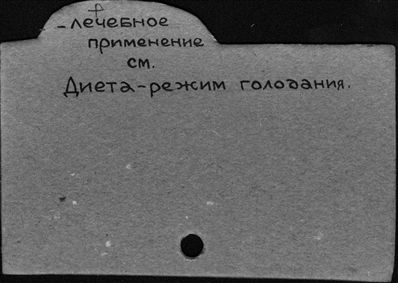 - лечебное
применение
см.
Диета-режим голодания.